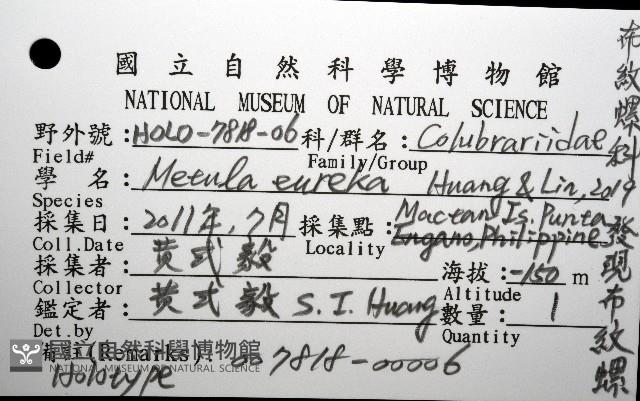 國立自然科學博物館
NATIONAL MUSEUM OF NATURAL SCIENCE
野外號:HOLO-7818-06 科/群名:Colubrariidae
Field# Family/Group
學 名:Metula eureka Huang & Lin, 2019
Species
採集日:2011年,7月 採集點:Mactan Is. Punta Engano, Philippine
Coll.Date Locality
採集者:黄式毅 海拔:-150 m
Collector Altitude
鑑定者:黄式毅 S. I. Huang 數量:1
Det.by Quantity
(Remarks): 7818-00006
Holotype
國立自然科學博物館
NATIONAL MUSEUM OF NATURAL SCIENCE
布紋螺科
發現布紋螺